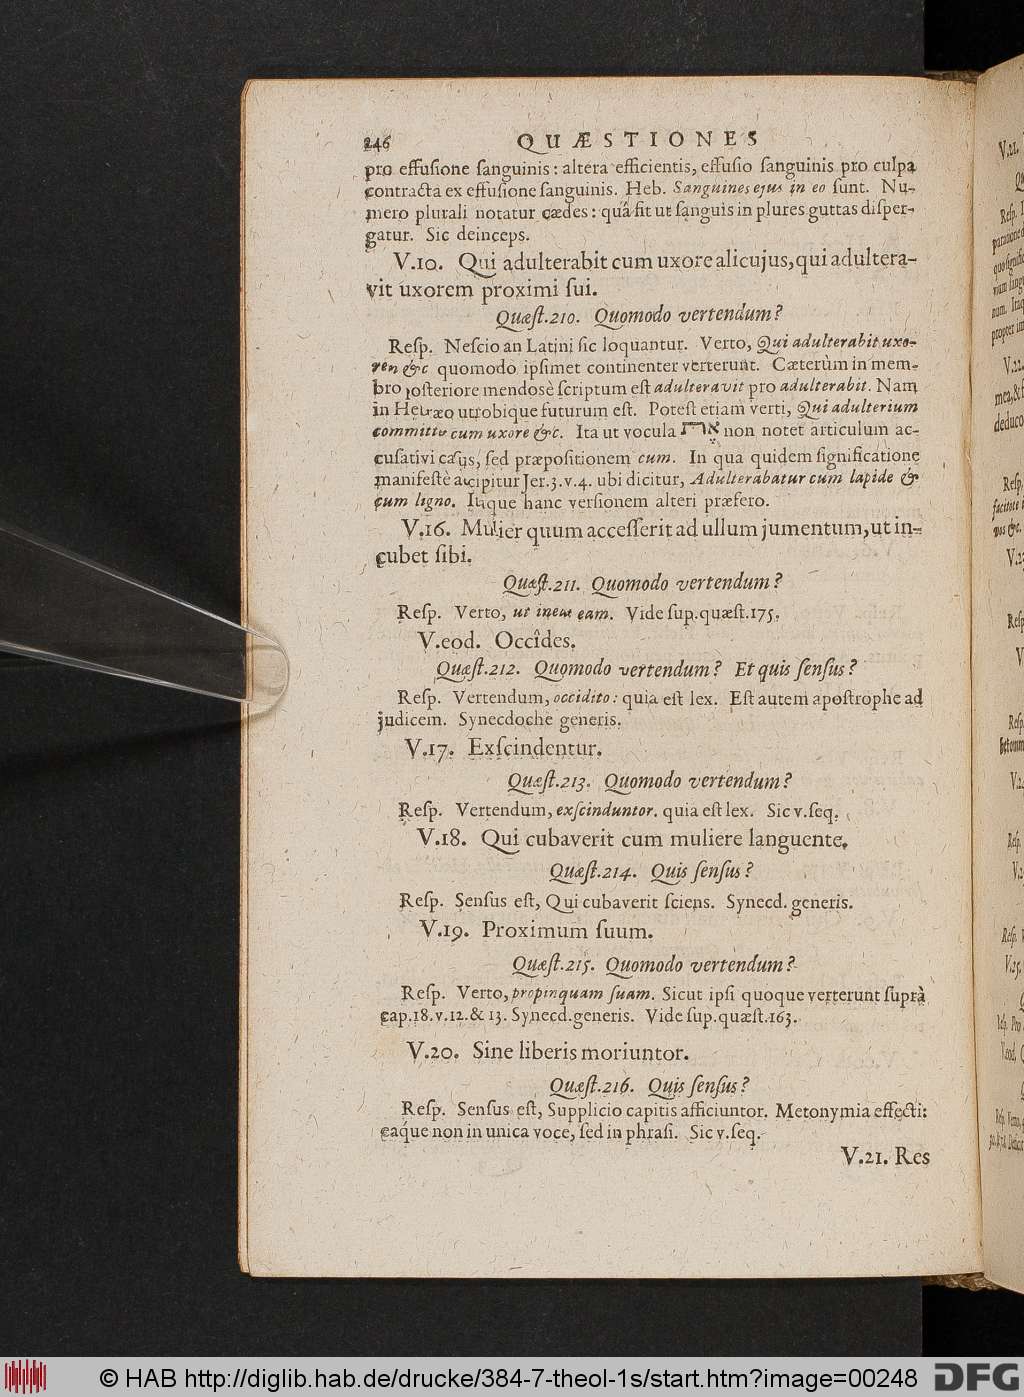 246 QUÆSTIONES
pro effusione sanguinis: altera efficientis, effusio sanguinis pro culpa
contracta ex effusione sanguinis. Heb. Sanguines ejus in eo sunt. Nu-
mero plurali notatur cædes: quâ fit ut sanguis in plures guttas disper-
gatur. Sic deinceps.
V.10. Qui adulterabit cum uxore alicujus, qui adultera-
vit uxorem proximi sui.
Quæst.210. Quomodo vertendum?
Resp. Nescio an Latini sic loquantur. Verto, Qui adulterabit uxo-
rem &c quomodo ipsimet continenter verterunt. Cæterùm in mem-
bro posteriore mendosè scriptum est adulteravit pro adulterabit. Nam
in Hebræo utrobique futurum est. Potest etiam verti, Qui adulterium
committit cum uxore &c. Ita ut vocula את non notet articulum ac-
cusativi casus, sed præpositionem cum. In qua quidem significatione
manifestè accipitur Jer.3.v.4. ubi dicitur, Adulterabatur cum lapide &
cum ligno. Itaque hanc versionem alteri præfero.
V.16. Mulier quum accesserit ad ullum jumentum, ut in-
cubet sibi.
Quæst.211. Quomodo vertendum?
Resp. Verto, ut ineat eam. Vide sup.quæst.175.
V.eod. Occîdes.
Quæst.212. Quomodo vertendum? Et quis sensus?
Resp. Vertendum, occidito: quia est lex. Est autem apostrophe ad
judicem. Synecdoche generis.
V.17. Exscindentur.
Quæst.213. Quomodo vertendum?
Resp. Vertendum, exscinduntor. quia est lex. Sic v.seq.
V.18. Qui cubaverit cum muliere languente.
Quæst.214. Quis sensus?
Resp. Sensus est, Qui cubaverit sciens. Synecd. generis.
V.19. Proximum suum.
Quæst.215. Quomodo vertendum?
Resp. Verto, propinquam suam. Sicut ipsi quoque verterunt suprà
cap.18.v.12.& 13. Synecd.generis. Vide sup.quæst.163.
V.20. Sine liberis moriuntor.
Quæst.216. Quis sensus?
Resp. Sensus est, Supplicio capitis afficiuntor. Metonymia effecti:
eaque non in unica voce, sed in phrasi. Sic v.seq.
V.21. Res
© HAB http://diglib.hab.de/drucke/384-7-theol-1s/start.htm?image=00248
DFG